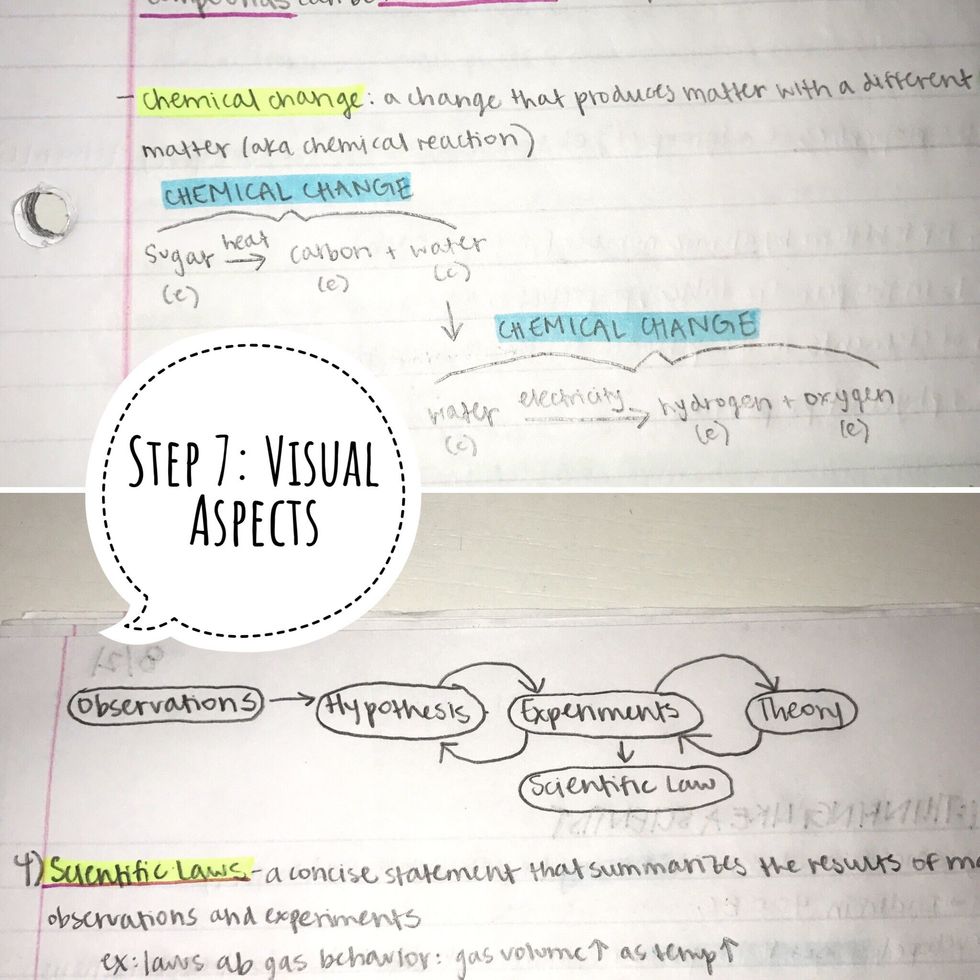 compounds can be
- chemical change: a change that produces matter with a different
matter (aka chemical reaction)
CHEMICAL CHANGE
sugar heat → carbon + water
(c) (e) (c)
↓
CHEMICAL CHANGE
water electricity → hydrogen + oxygen
(c) (e) (e)
STEP 7: VISUAL
ASPECTS
Observations → Hypothesis Experiments Theory
↓
Scientific Law
4) Scientific Laws - a concise statement that summarizes the results of
observations and experiments
ex: laws ab gas behavior: gas volume ↑ as temp ↑